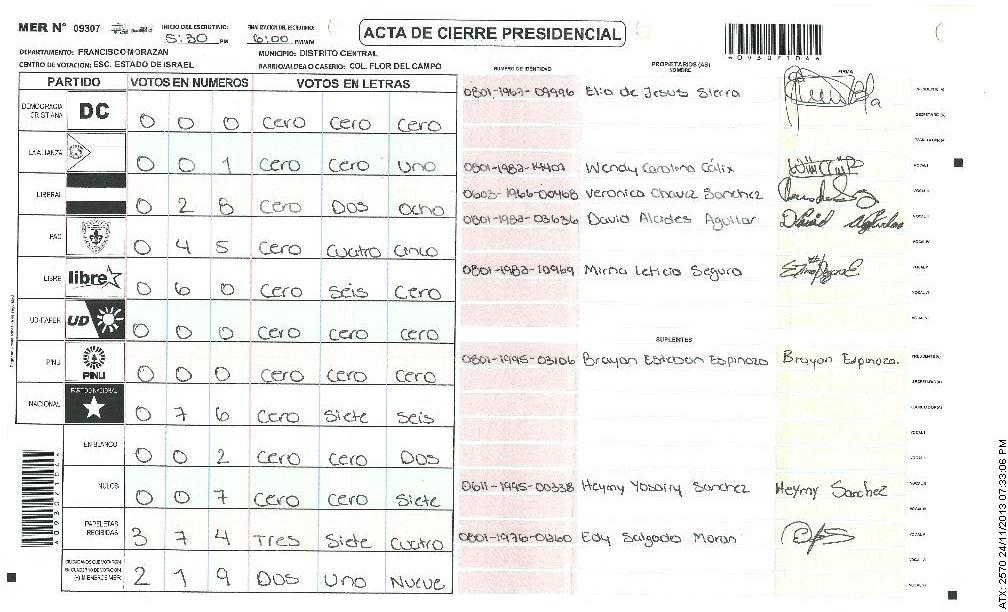 MER N° 09307
INICIO DEL ESCRUTINIO: 5:30 PM
FINALIZACION DEL ESCRUTINIO: 6:00 PM/AM
ACTA DE CIERRE PRESIDENCIAL
DEPARTAMENTO: FRANCISCO MORAZAN
MUNICIPIO: DISTRITO CENTRAL
CENTRO DE VOTACION: ESC. ESTADO DE ISRAEL
BARRIO/ALDEA O CASERIO: COL. FLOR DEL CAMPO
PARTIDO VOTOS EN NUMEROS VOTOS EN LETRAS
DEMOCRACIA CRISTIANA DC 0 0 0 Cero Cero Cero
LA ALIANZA 0 0 1 Cero Cero Uno
LIBERAL 0 2 8 Cero Dos Ocho
PAC 0 4 5 Cero Cuatro Cinco
LIBRE libre 0 6 0 Cero Seis Cero
UD-FAPER UD 0 0 0 Cero Cero Cero
PINU PINU 0 0 0 Cero Cero Cero
NACIONAL PARTIDO NACIONAL 0 7 6 Cero Siete Seis
EN BLANCO 0 0 2 Cero Cero Dos
NULOS 0 0 7 Cero Cero Siete
PAPELETAS RECIBIDAS 3 7 4 Tres Siete Cuatro
CIUDADANOS QUE VOTARON EN CUADERNO DE VOTACION (+) MIEMBROS MER 2 1 9 Dos Uno Nueve
NUMERO DE IDENTIDAD
PROPIETARIOS (AS)
NOMBRE
FIRMA
Elia de Jesus Sierra PRESIDENTE (A)
SECRETARIO (A)
Wendy Carolina Cálix
0603-1966-00468 Veronica Chavez Sanchez
0801-1982-03636 David Alcides Aguilar
0801-1982-10969 Mirna Leticia Seguro
SUPLENTES
0801-1995-03106 Brayan Esteban Espinoza Brayan Espinoza. PRESIDENTE (A)
SECRETARIO (A)
0611-1995-00338 Heymy Yosairy Sanchez Heymy Sanchez
0801-1976-01360 Edy Salgado Moran
ATX: 2570 24/11/2013 07:33:06 PM